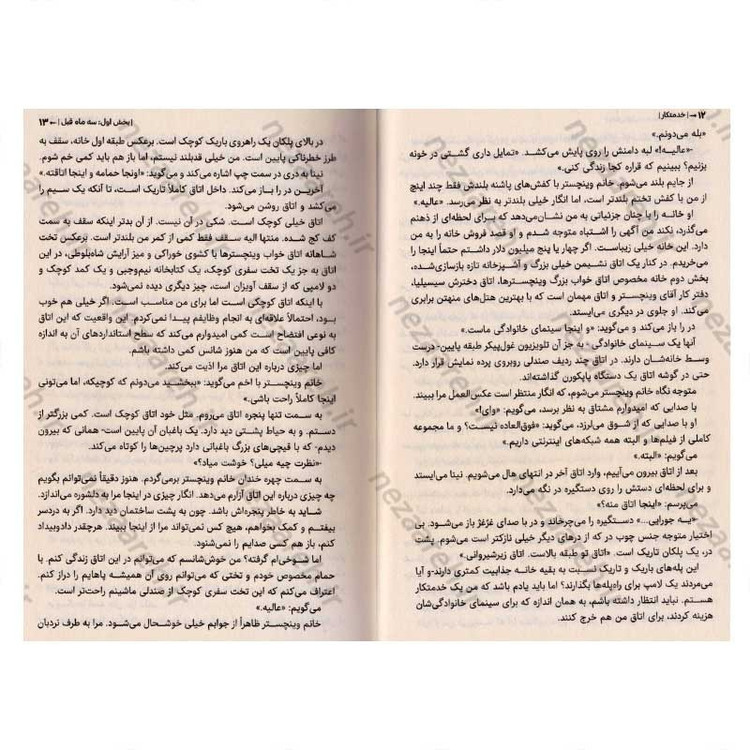 ۱۲ ← | خدمتکار |
«بله می‌دونم.»
«عالیه!» لبه دامنش را روی پایش می‌کشد. «تمایل داری گشتی در خونه
بزنیم؟ ببینیم که قراره کجا زندگی کنی.»
از جایم بلند می‌شوم. خانم وینچستر با کفش‌های پاشنه بلندش فقط چند اینچ
از من با کفش تختم بلندتر است، اما انگار خیلی بلندتر به نظر می‌رسد. «عالیه.»
او خانه را با چنان جزئیاتی به من نشان‌می‌دهد که برای لحظه‌ای از ذهنم
می‌گذرد، نکند من آگهی را اشتباه متوجه شدم و او قصد فروش خانه را به من
دارد. این خانه خیلی زیباست. اگر چهار یا پنج میلیون دلار داشتم حتماً اینجا را
می‌خریدم. در کنار یک اتاق نشیمن خیلی بزرگ و آشپزخانه تازه بازسازی‌شده،
بخش دوم خانه مخصوص اتاق خواب بزرگ وینچسترها، اتاق دخترش سیسیلیا،
دفتر کار آقای وینچستر و اتاق مهمان است که با بهترین هتل‌های منهتن برابری
می‌کند. او جلوی در دیگری می‌ایستد.
در را باز می‌کند و می‌گوید: «و اینجا سینمای خانوادگی ماست.»
آنها یک سینمای خانوادگی - به جز آن تلویزیون غول‌پیکر طبقه پایین- درست
وسط خانه‌شان دارند. در اتاق چند ردیف صندلی روبروی پرده نمایش قرار دارد.
حتی در گوشه اتاق یک دستگاه پاپکورن گذاشته‌اند.
متوجه نگاه خانم وینچستر می‌شوم، که انگار منتظر است عکس‌العمل مرا ببیند.
با صدایی که امیدوارم مشتاق به نظر برسد، می‌گویم: «وای!»
او با صدایی که از شوق می‌لرزد، می‌گوید: «فوق‌العاده نیست؟ و ما مجموعه
کاملی از فیلم‌ها و البته همه شبکه‌های اینترنتی داریم.»
می‌گویم: «البته.»
بعد از اتاق بیرون می‌آییم، وارد اتاق آخر در انتهای هال می‌شویم. نینا می‌ایستد
و برای لحظه‌ای دستش را روی دستگیره در نگه می‌دارد.
می‌پرسم: «اینجا اتاق منه؟»
«یه جورایی...» دستگیره را می‌چرخاند و در با صدای غژغژ باز می‌شود. بی
اختیار متوجه جنس چوب در که از درهای دیگر خیلی نازکتر است می‌شوم. پشت
در، یک پلکان تاریک است. «اتاق تو طبقه بالاست. اتاق زیرشیروانی.»
این پله‌های باریک و تاریک نسبت به بقیه خانه جذابیت کمتری دارند-و آیا
می‌مردند یک لامپ برای راه‌پله‌ها بگذارند؟ اما باید یادم باشد که من یک خدمتکار
هستم. نباید انتظار داشته باشم، به همان اندازه که برای سینمای خانوادگی‌شان
هزینه کردند، برای اتاق من هم خرج کنند.
| بخش اول: سه ماه قبل | → ۱۳
در بالای پلکان یک راهروی باریک کوچک است. برعکس طبقه اول خانه، سقف به
طرز خطرناکی پایین است. من خیلی قدبلند نیستم، اما باز هم باید کمی خم شوم.
نینا به دری در سمت چپ اشاره می‌کند و می‌گوید: «اونجا حمامه و اینجا اتاقته.»
آخرین در را باز می‌کند. داخل اتاق کاملاً تاریک است، تا آنکه یک سیم را
می‌کشد و اتاق روشن می‌شود.
اتاق خیلی کوچک است. شکی در آن نیست. از آن بدتر اینکه سقف به سمت
کف کج شده. منتها الیه سقف فقط کمی از کمر من بلندتر است. برعکس تخت
شاهانه اتاق خواب وینچسترها با کشوی خوراکی و میز آرایش شاه‌بلوطی، در این
اتاق به جز یک تخت سفری کوچک، یک کتابخانه نیم‌وجبی و یک کمد کوچک و
دو لامپی که از سقف آویزان است، چیز دیگری دیده نمی‌شود.
با اینکه اتاق کوچکی است اما برای من مناسب است. اگر خیلی هم خوب
بود، احتمالاً علاقه‌ای به انجام وظایفم پیدا نمی‌کردم. این واقعیت که این اتاق
به نوعی افتضاح است کمی امیدوارم می‌کند که سطح استانداردهای آن به اندازه
کافی پایین است که من هنوز شانس کمی داشته باشم.
اما چیزی درباره این اتاق مرا اذیت می‌کند.
خانم وینچستر با اخم می‌گوید: «ببخشید می‌دونم که کوچیکه، اما می‌تونی
اینجا کاملاً راحت باشی.»
به سمت تنها پنجره اتاق می‌روم. مثل خود اتاق کوچک است. کمی بزرگتر از
دستم. و به حیاط پشتی دید دارد. یک باغبان آن پایین است- همانی که بیرون
دیدم- که با قیچی‌های بزرگ باغبانی دارد پرچین‌ها را کوتاه می‌کند.
«نظرت چیه میلی؟ خوشت میاد؟»
به سمت چهره خندان خانم وینچستر برمی‌گردم. هنوز دقیقاً نمی‌توانم بگویم
چه چیزی درباره این اتاق آزارم می‌دهد. انگار چیزی در اینجا مرا به دلشوره می‌اندازد.
شاید به خاطر پنجره‌اش باشد. چون به پشت ساختمان دید دارد. اگر به دردسر
بیفتم و کمک بخواهم، هیچ کس نمی‌تواند مرا از اینجا ببیند. هرچقدر دادوبیداد
کنم، باز هم کسی صدایم را نمی‌شنود.
اما شوخی‌ام گرفته؟ من خوش‌شانسم که می‌توانم در این اتاق زندگی کنم. با
حمام مخصوص خودم و تختی که می‌توانم روی آن همیشه پاهایم را دراز کنم.
اعتراف می‌کنم که این تخت سفری کوچک از صندلی ماشینم راحت‌تر است.
می‌گویم: «عالیه.»
خانم وینچستر ظاهراً از جوابم خیلی خوشحال می‌شود. مرا به طرف نردبان
nezaareh.ir